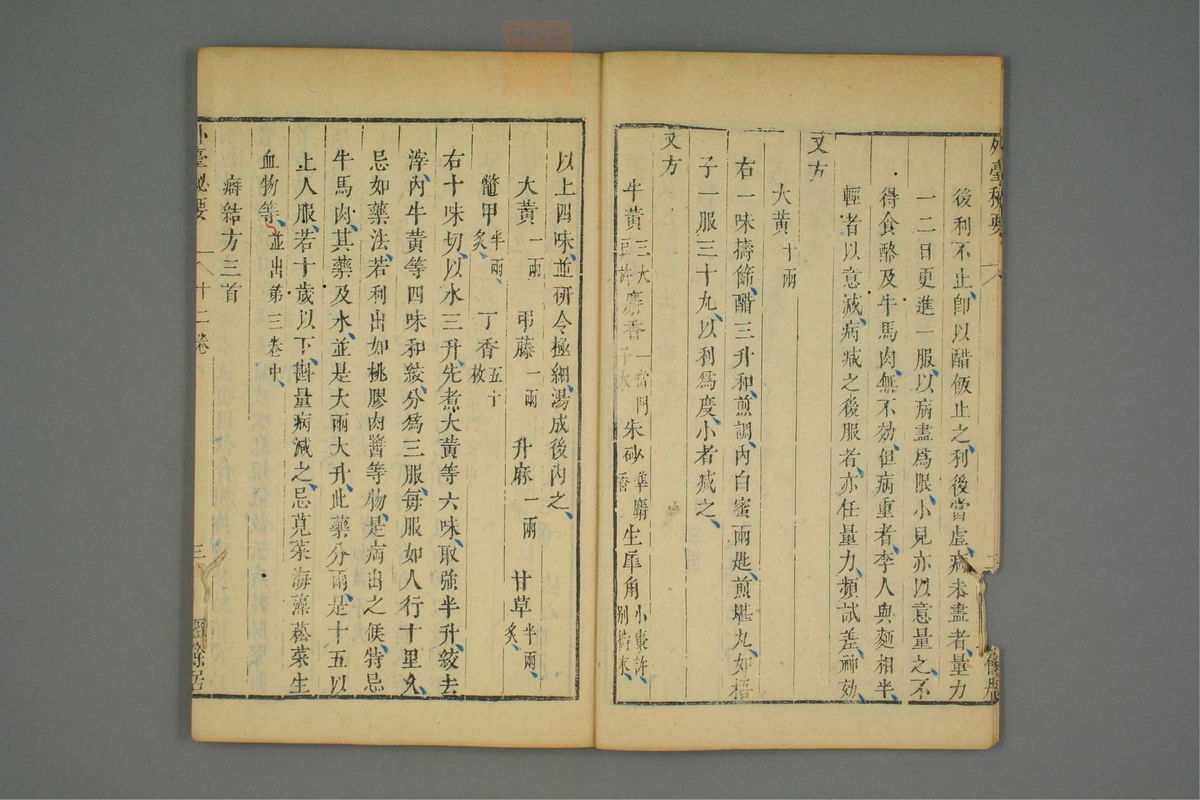 後利不止卽以醋飯止之利後當虛病未盡者量力
一二日更進一服以病盡爲限小兒亦以意量之不
得食酪及牛馬肉無不効但病重者李人與麵相半
輕者以意減病減之後服者亦任量力頻試差神効
又方
大黃十兩
右一味擣篩醋三升和煎調內白蜜兩匙煎堪丸如梧
子一服三十丸以利爲度小者减之
又方
牛黃三大豆許 麝香一當門子大 朱砂準麝香 生犀角小棗許別擣末
以上四味並硏令極細湯成後內之
大黃一兩 弔藤一兩 升麻一兩 甘草半兩炙
鼈甲半兩炙 丁香五十枚
右十味切以水三升先煮大黃等六味取強半升絞去
滓內牛黃等四味和絞分爲三服每服如人行十里久
忌如藥法若利出如桃膠肉醬等物是病出之候特忌
牛馬肉其藥及水並是大兩大升此藥分兩是十五以
上人服若十歲以下斟量病減之忌莧菜海藻菘菜生
血物等並出第三卷中
癖結方三首
外臺秘要 十二卷 三 經餘居